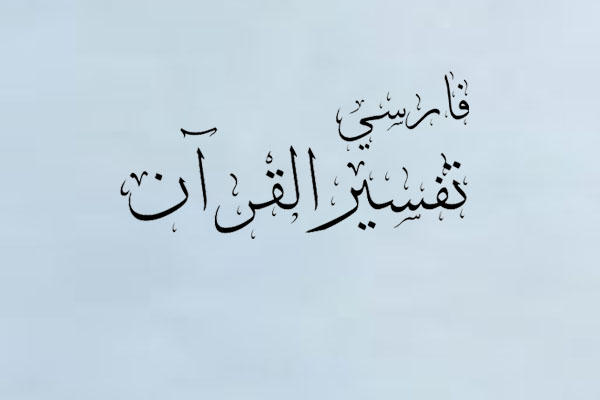 فارسي
تفسير القرآن